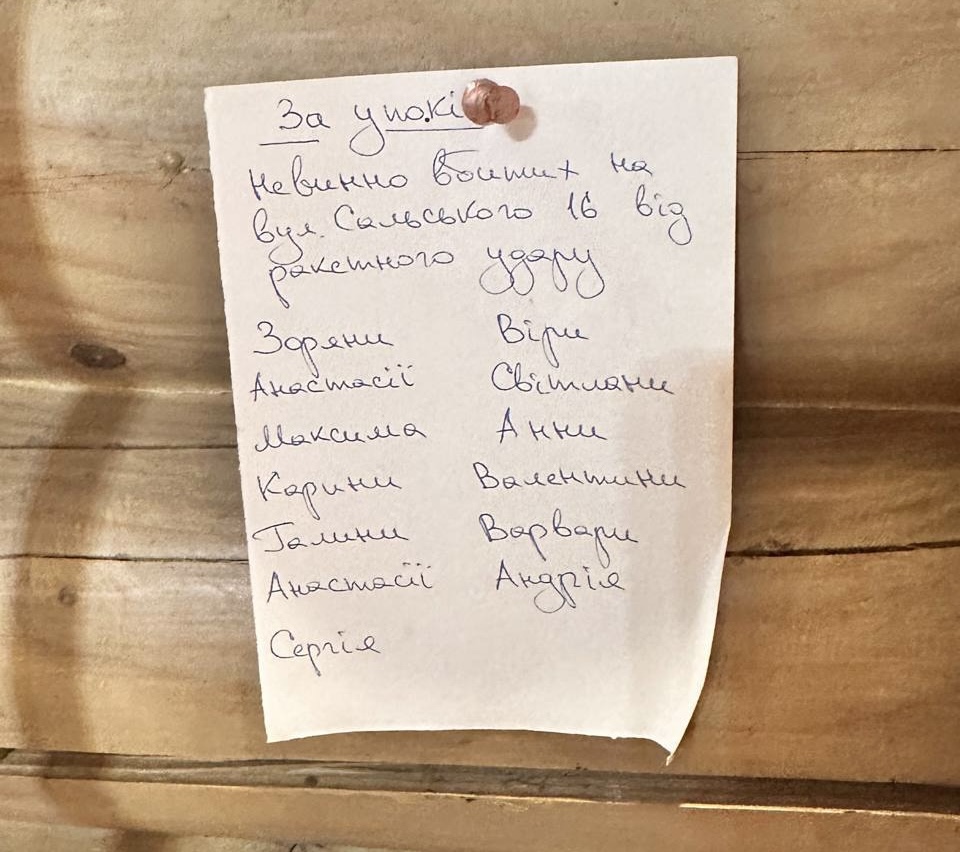 За упокі
невинно вбитих на
вул. Сальського 16 від
ракетного удару
Зоряни Віри
Анастасії Світлани
Максима Анни
Карини Валентини
Галини Варвари
Анастасії Андрія
Сергія